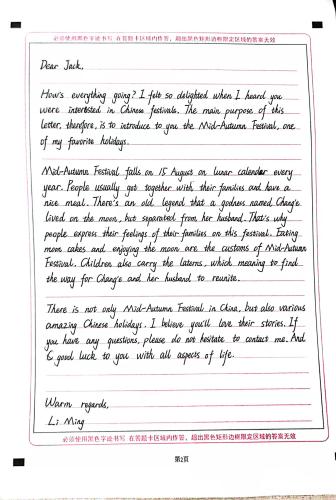 必须使用黑色字迹书写 在答题卡区域内作答，超出黑色矩形边框限定区域的答案无效
Dear Jack,
How's everything going? I felt so delighted when I heard you
were interested in Chinese festivals. The main purpose of this
letter, therefore, is to introduce to you the Mid-Autumn Festival, one
of my favorite holidays.
Mid-Autumn Festival falls on 15 August on lunar calendar every
year. People usually get together with their families and have a
nice meal. There's an old legend that a godness named Chang'e
lived on the moon, but separated from her husband. That's why
people express their feelings of their families on this festival. Eating
moon cakes and enjoying the moon are the customs of Mid-Autumn
Festival. Children also carry the laterns, which meaning to find
the way for Chang'e and her husband to reunite.
There is not only Mid-Autumn Festival in China, but also various
amazing Chinese holidays. I believe you'll love their stories. If
you have any questions, please do not hesitate to contact me. And
G good luck to you with all aspects of life.
Warm regards,
Li Ming
必须使用黑色字迹书写 在答题卡区域内作答，超出黑色矩形边框限定区域的答案无效
第2页